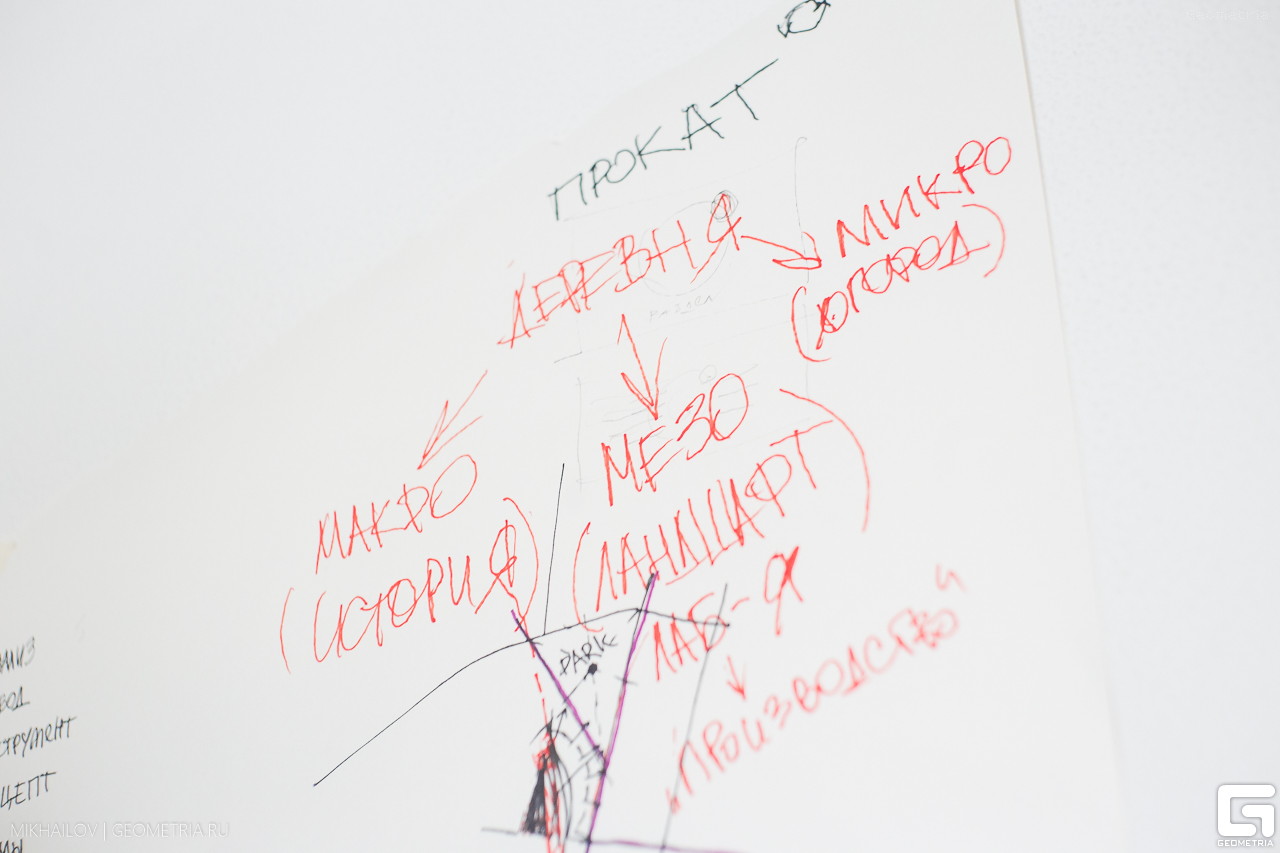 ПРОКАТ
ДЕРЕВНЯ
МИКРО
(ОГОРОД)
РАЗДЕЛ
МЕЗО
(ЛАНДШАФТ)
МАКРО
(ИСТОРИЯ)
ЛАБ-Я
PARK
"ПРОИЗВОДСТВО"
ТРУМЕНТ
ЦЕПТ
MIKHAILOV | GEOMETRIA.RU
GEOMETRIA